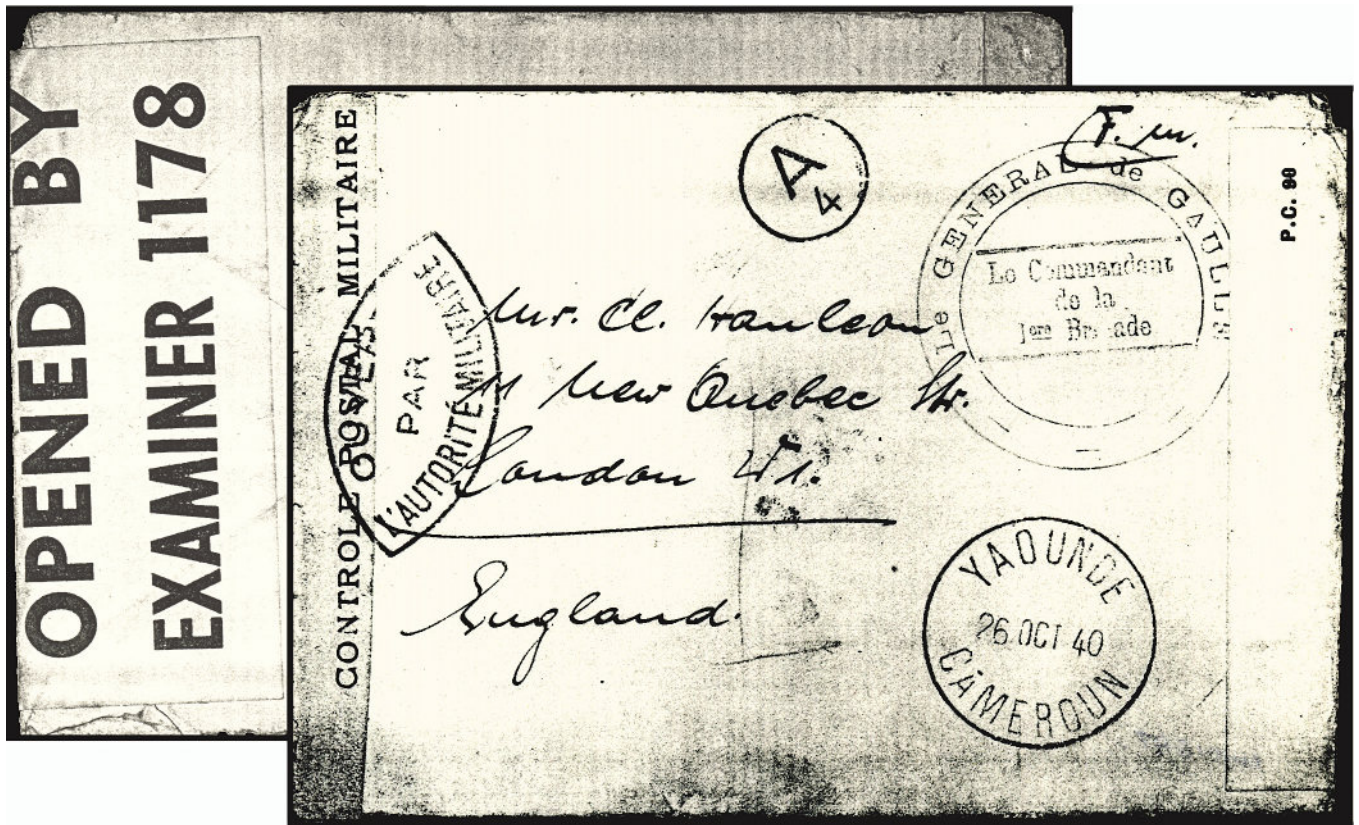 OPENED BY
EXAMINER 1178
CONTROLE POSTAL MILITAIRE
OUVERT
PAR
L'AUTORITÉ MILITAIRE
A
4
F. M.
Le GENERAL de GAULLE
Le Commandant
de la
1ere Brigade
P.C. 90
Mr. Cl.
11 New Quebec Str.
London W1.
England.
YAOUNDE
26 OCT 40
CAMEROUN